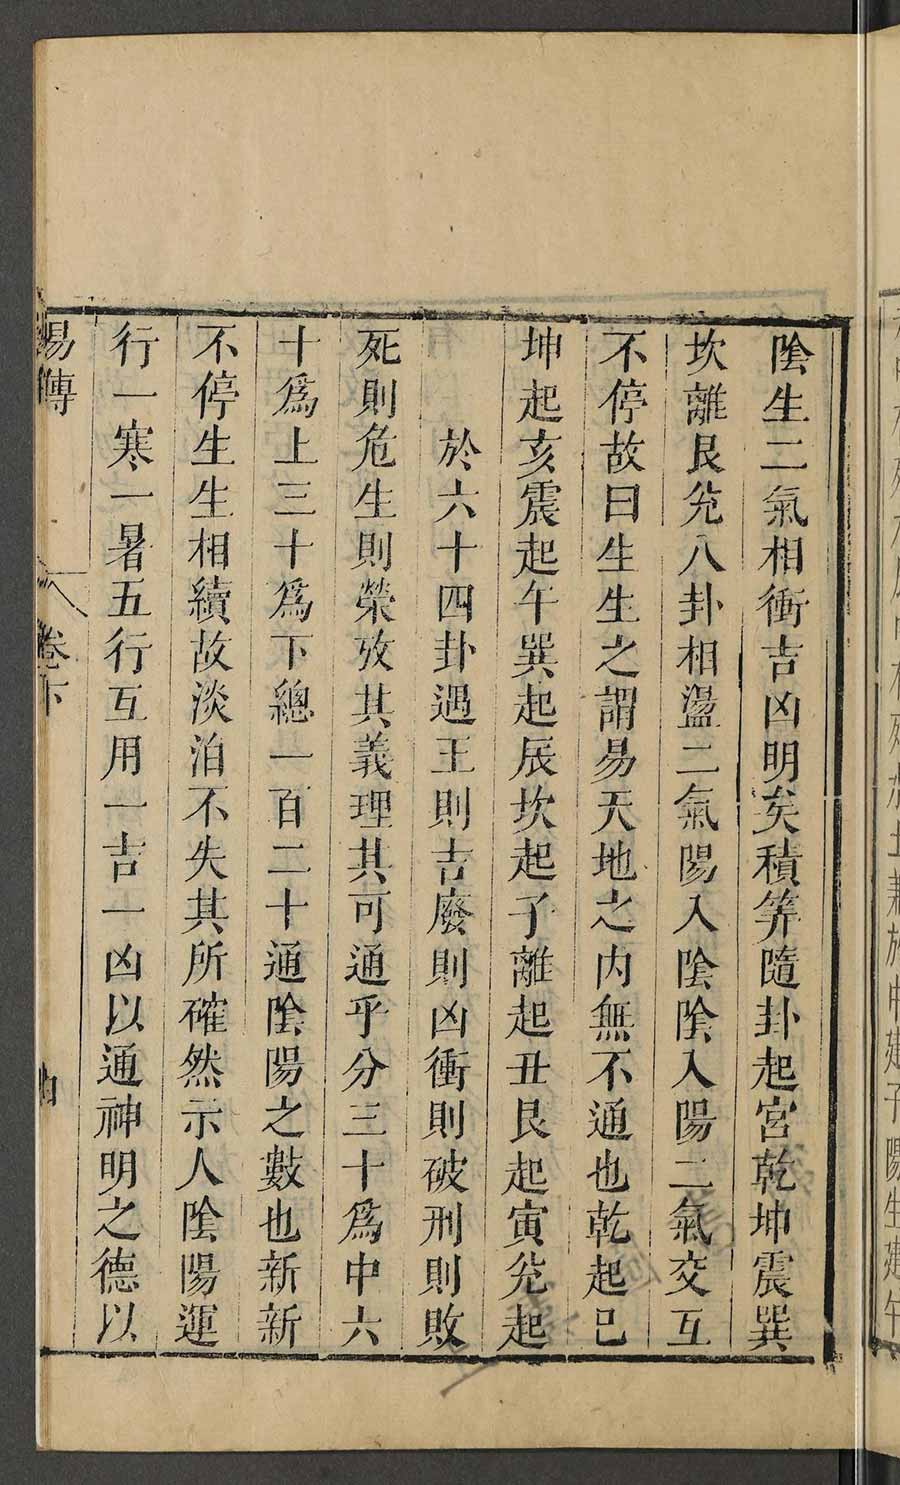 陰生二氣相衝吉凶明矣積筭隨卦起宮乾坤震巽
坎離艮兊八卦相盪二氣陽入陰陰入陽二氣交互
不停故曰生生之謂易天地之内無不通也乾起巳
坤起亥震起午巽起辰坎起子離起丑艮起寅兊起
於六十四卦遇王則吉廢則凶衝則破刑則敗
死則危生則榮攷其義理其可通乎分三十爲中六
十爲上三十爲下總一百二十通陰陽之數也新新
不停生生相續故淡泊不失其所確然示人陰陽運
行一寒一暑五行互用一吉一凶以通神明之德以
易傳 卷下 四